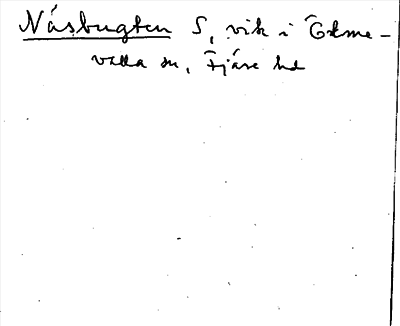 Näsbugten S, vik i Tölme-
valla sn, Fjäre hd